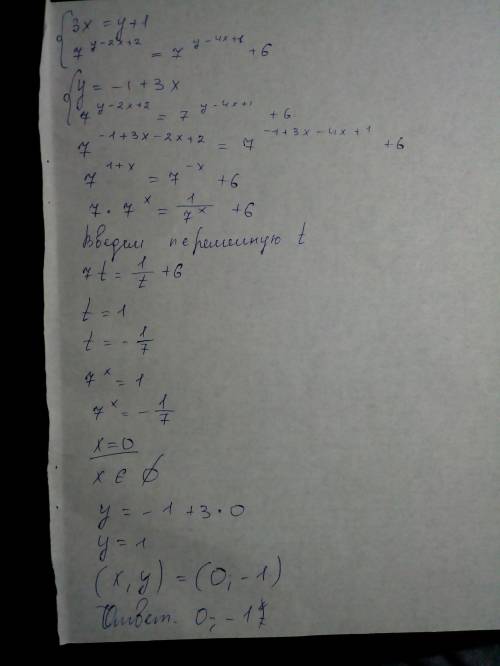 {3x = y+1
7^{y-2x+2} = 7^{y-4x+1} +6
{y = -1 + 3x
7^{y-2x+2} = 7^{y-4x+1} +6
7^{-1+3x-2x+2} = 7^{-1+3x-4x+1} +6
7^{1+x} = 7^{-x} +6
7 · 7^x = 1/7^x +6
Введем переменную t
7t = 1/t +6
t = 1
t = -1/7
7^x = 1
7^x = -1/7
x=0
x ∈ ∅
y = -1 + 3·0
y = 1
(x, y) = (0; -1)
Ответ. 0; -1